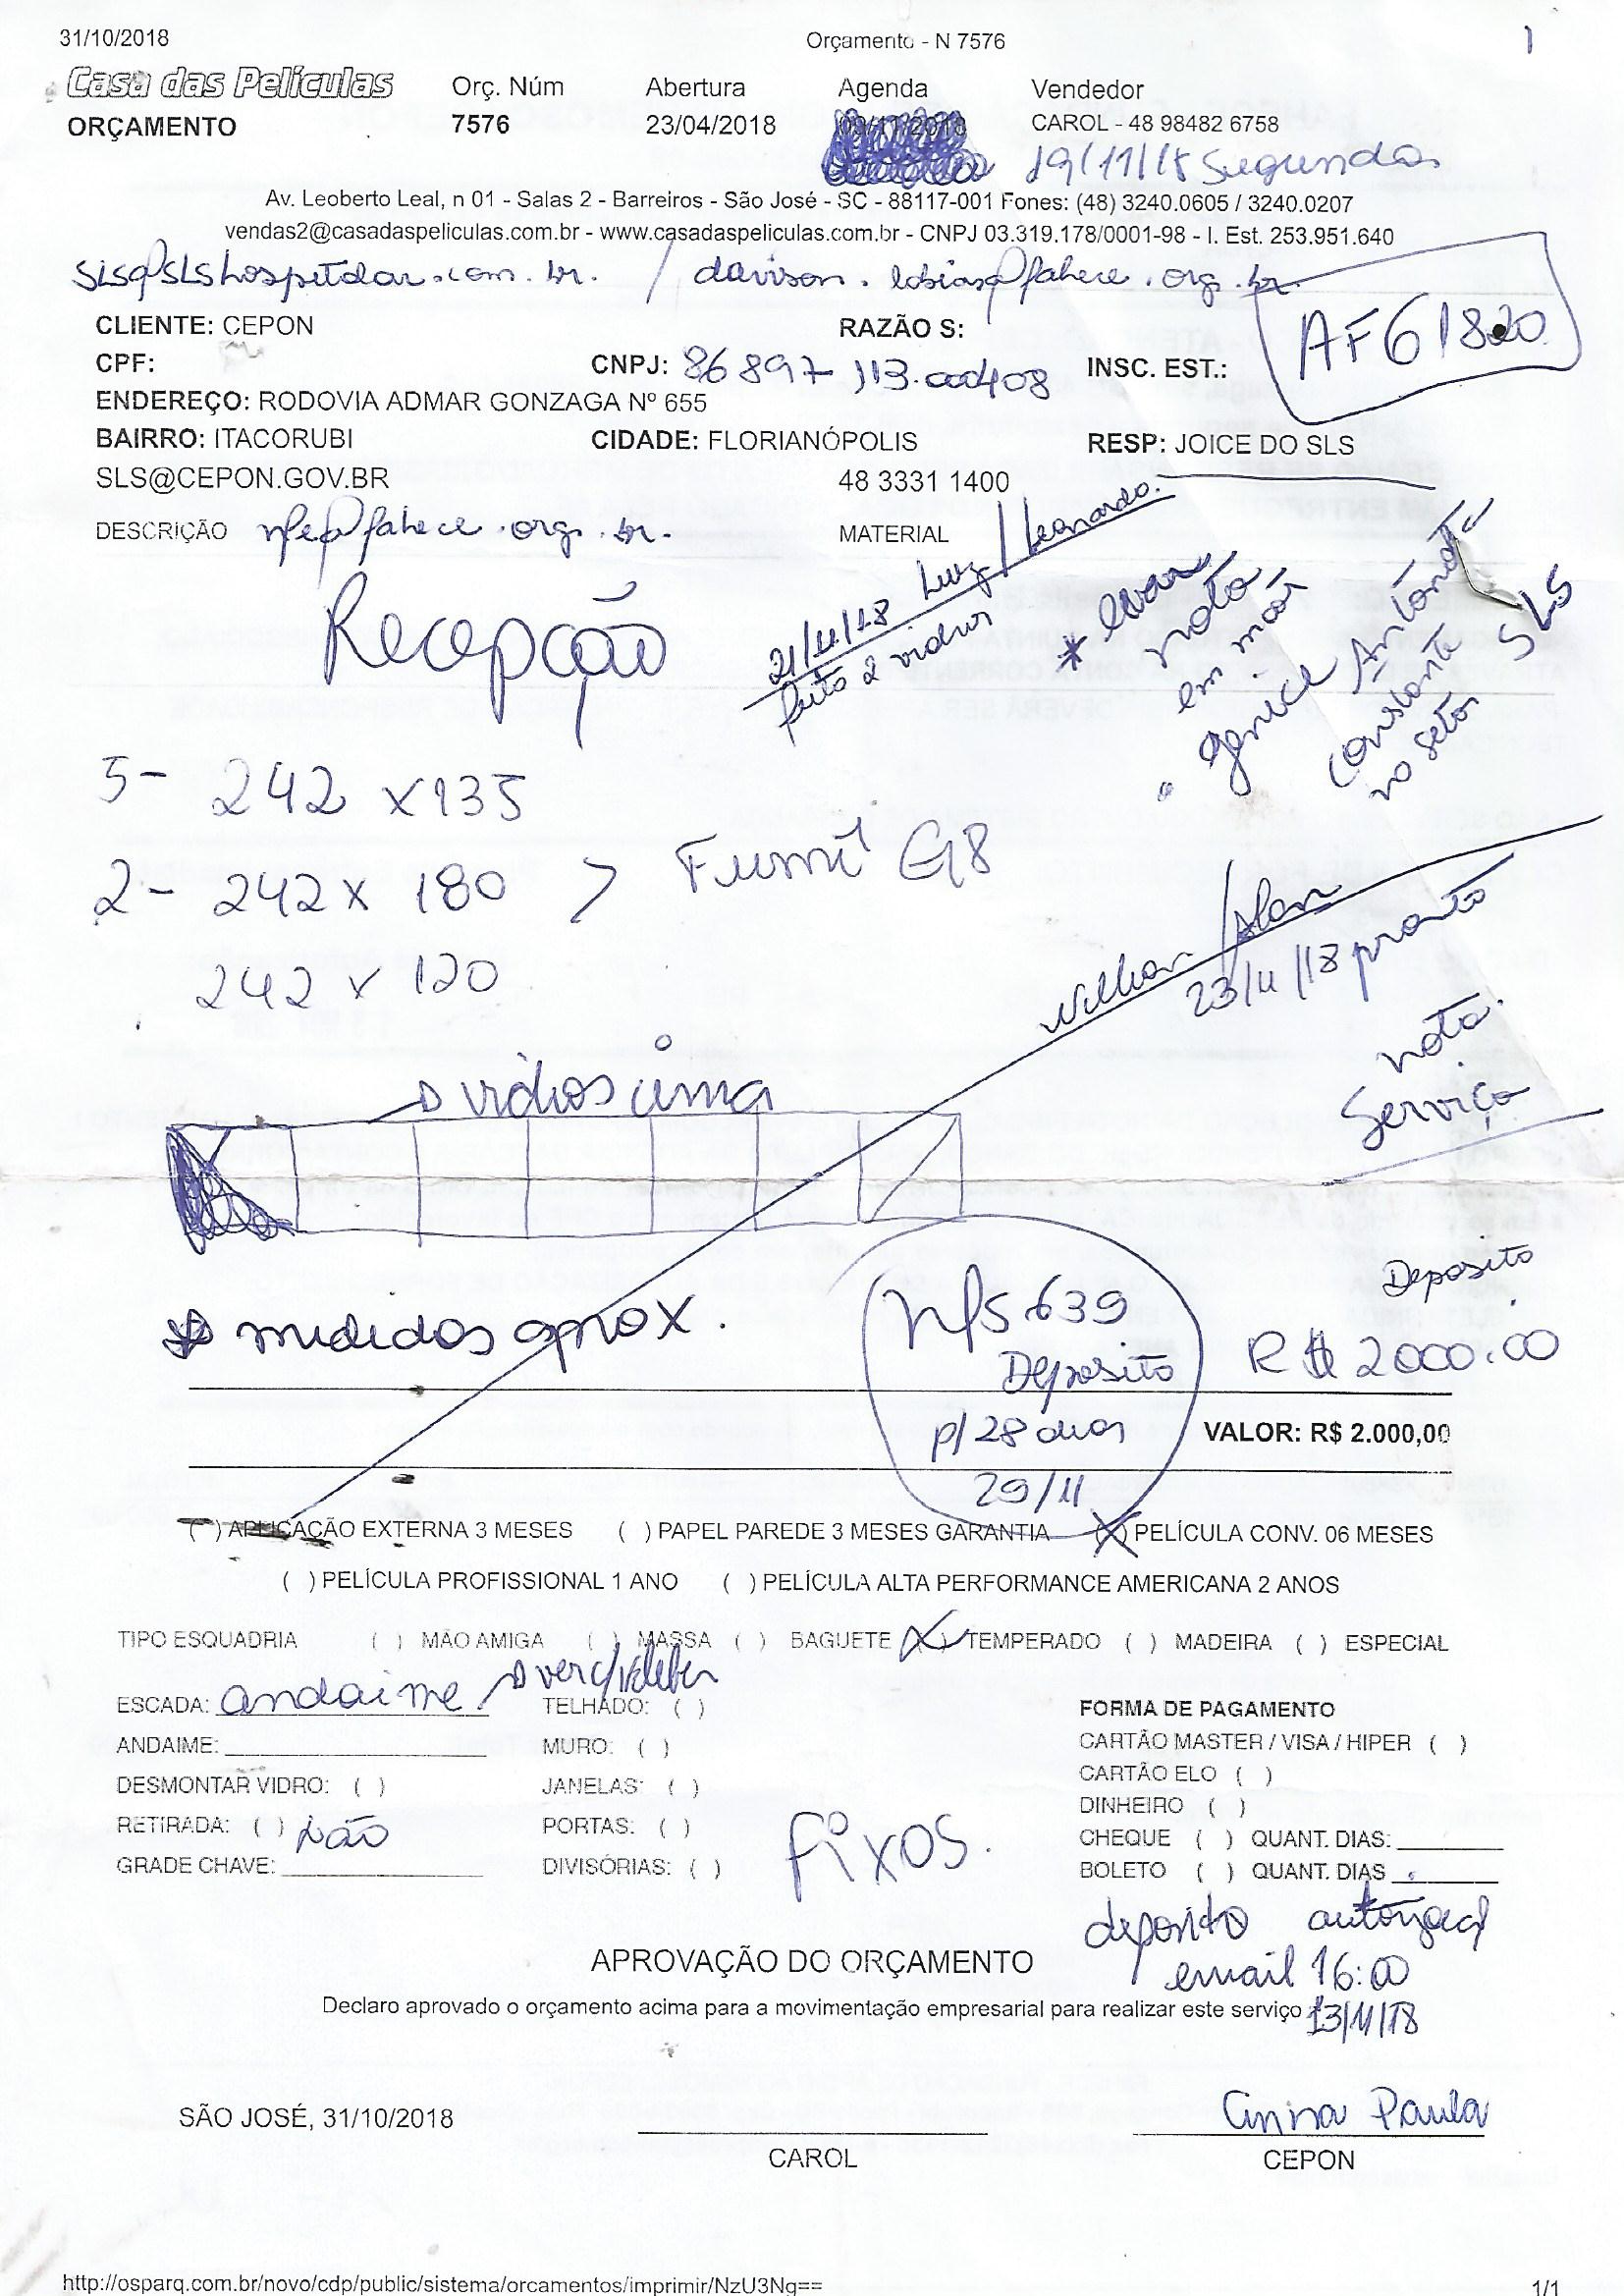 31/10/2018 Orçamento - N 7576 1
Casa das Películas Orç. Núm Abertura Agenda Vendedor
ORÇAMENTO 7576 23/04/2018 CAROL - 48 98482 6758
19/11/18 Segunda
Av. Leoberto Leal, n 01 - Salas 2 - Barreiros - São José - SC - 88117-001 Fones: (48) 3240.0605 / 3240.0207
vendas2@casadaspeliculas.com.br - www.casadaspeliculas.com.br - CNPJ 03.319.178/0001-98 - I. Est. 253.951.640
sls@slshospitalar.com.br. / davison.tobias@fahece.org.br
AF61820
CLIENTE: CEPON RAZÃO S:
CPF: CNPJ: 86897 113.000408 INSC. EST.:
ENDEREÇO: RODOVIA ADMAR GONZAGA Nº 655
BAIRRO: ITACORUBI CIDADE: FLORIANÓPOLIS RESP: JOICE DO SLS
SLS@CEPON.GOV.BR 48 3331 1400
DESCRIÇÃO nfe@fahece.org.br. MATERIAL
Recepção
21/11/18 Luiz / Leonardo.
feito 2 vidros
* levar
nota
em mãos
Genice Antonieta
constante
no setor SLS
5- 242 x 135
2- 242 x 180 > Fumê G8
242 x 120
Willian / Alan
23/11/18 pronto
nota
Serviço
vidros cima
medidas aprox.
nfs 639
Deposito
p/ 28 dias
29/11
Deposito
R$ 2000.00
VALOR: R$ 2.000,00
( ) APLICAÇÃO EXTERNA 3 MESES ( ) PAPEL PAREDE 3 MESES GARANTIA (X) PELÍCULA CONV. 06 MESES
( ) PELÍCULA PROFISSIONAL 1 ANO ( ) PELÍCULA ALTA PERFORMANCE AMERICANA 2 ANOS
TIPO ESQUADRIA ( ) MÃO AMIGA ( ) MASSA ( ) BAGUETE (X) TEMPERADO ( ) MADEIRA ( ) ESPECIAL
ESCADA: andaime ver c/ Kleber TELHADO: ( ) FORMA DE PAGAMENTO
ANDAIME: MURO: ( ) CARTÃO MASTER / VISA / HIPER ( )
DESMONTAR VIDRO: ( ) JANELAS: ( ) CARTÃO ELO ( )
RETIRADA: ( ) Não PORTAS: ( ) DINHEIRO ( )
GRADE CHAVE: DIVISÓRIAS: ( ) Fixos. CHEQUE ( ) QUANT. DIAS:
BOLETO ( ) QUANT. DIAS
deposito
email 16:00
APROVAÇÃO DO ORÇAMENTO
Declaro aprovado o orçamento acima para a movimentação empresarial para realizar este serviço 13/11/18
SÃO JOSÉ, 31/10/2018 Anna Paula
CAROL CEPON
http://osparq.com.br/novo/cdp/public/sistema/orcamentos/imprimir/NzU3Ng== 1/1